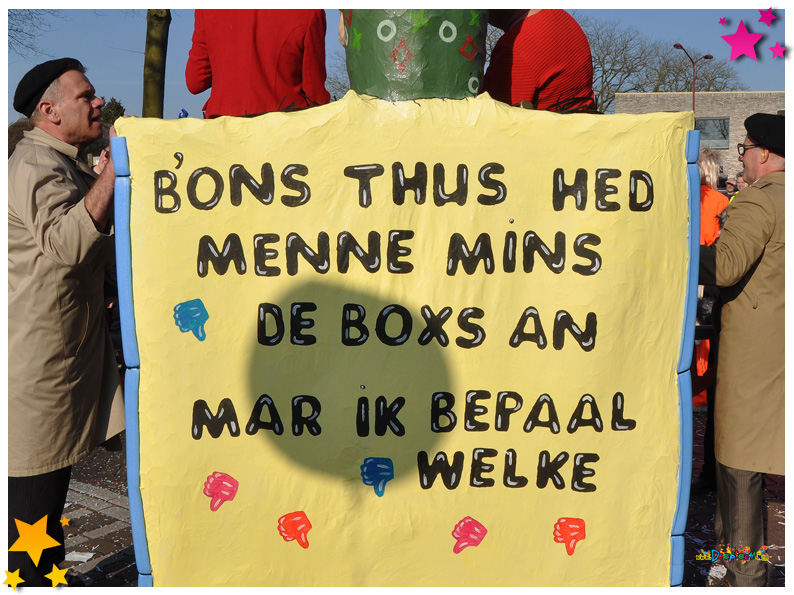 B'ONS THUS HED
MENNE MiNS
DE BOXS AN
MAR iK BEPAAL
WELKE